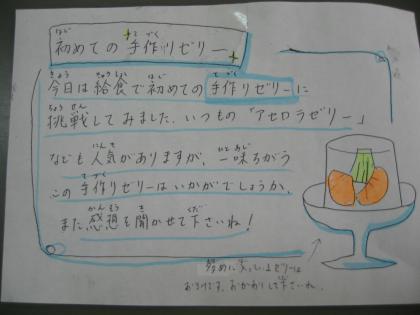 初めての手作りゼリー
今日は給食で初めての手作りゼリーに
挑戦してみました。いつもの「アセロラゼリー」
なども人気がありますが、一味ちがう
この手作りゼリーはいかがでしょうか。
また感想を聞かせて下さいね！
多めに入っているゼリーは
おまけです。おかわりして下さいね。